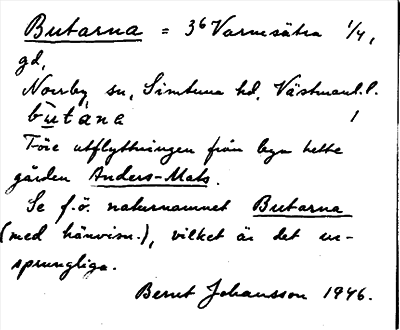 Butarna = 3⁶ Varmsätra 1/4,
gd,
Norrby sn, Simtuna hd, Västmanl. l.
bu̲tana
Före utflyttningen från byn hette
gården Anders-Mats.
Se f.ö. naturnamnet Butarna
(med hänvisn.), vilket är det ur-
sprungliga.
Bernt Johansson 1946.